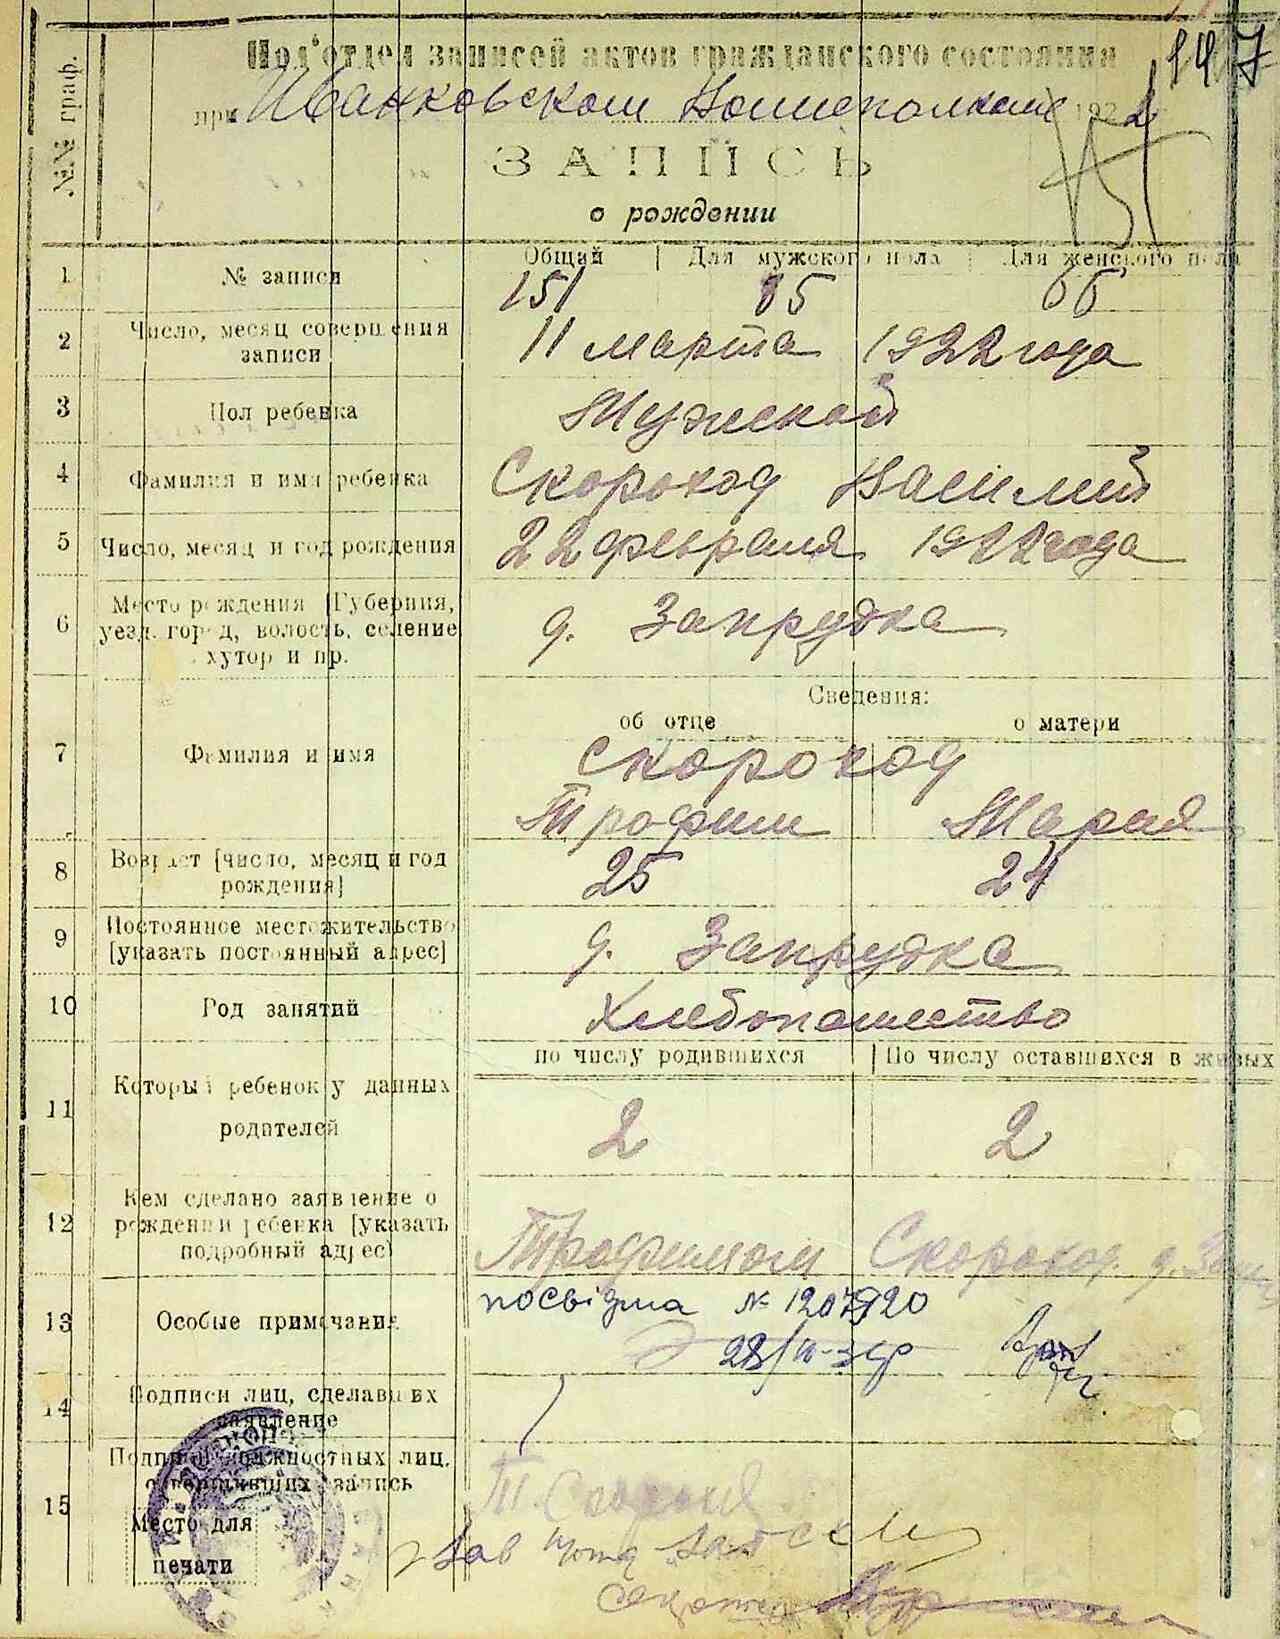 147
№№ граф.
Под'отдел записей актов гражданского состояния
при Иванковском Волисполкоме 1922
ЗАПИСЬ
о рождении
Общий | Для мужского пола | Для женского пола
1 № записи 151 85 66
2 Число, месяц совершения записи 11 марта 1922 года
3 Пол ребенка Мужской
4 Фамилия и имя ребенка Скороход Василий
5 Число, месяц и год рождения 22 февраля 1922 года
6 Место рождения [Губерния,
уезд, город, волость, селение
хутор и пр. д. Запрудка
Сведения:
об отце о матери
7 Фамилия и имя Скороход
Трофим Мария
8 Возраст [число, месяц и год
рождения] 25 24
9 Постоянное местожительство
[указать постоянный адрес] д. Запрудка
10 Род занятий Хлебопашество
по числу родившихся | По числу оставшихся в живых
11 Который ребенок у данных
родителей 2 2
12 Кем сделано заявление о
рождении ребенка [указать
подробный адрес] Трофимом Скороход д.
13 Особые примечания посвідма № 1207920
14 Подписи лиц, сделавших
заявление
15 Подписи должностных лиц,
совершивших запись
Т. Скороход
Место для
печати
Зав